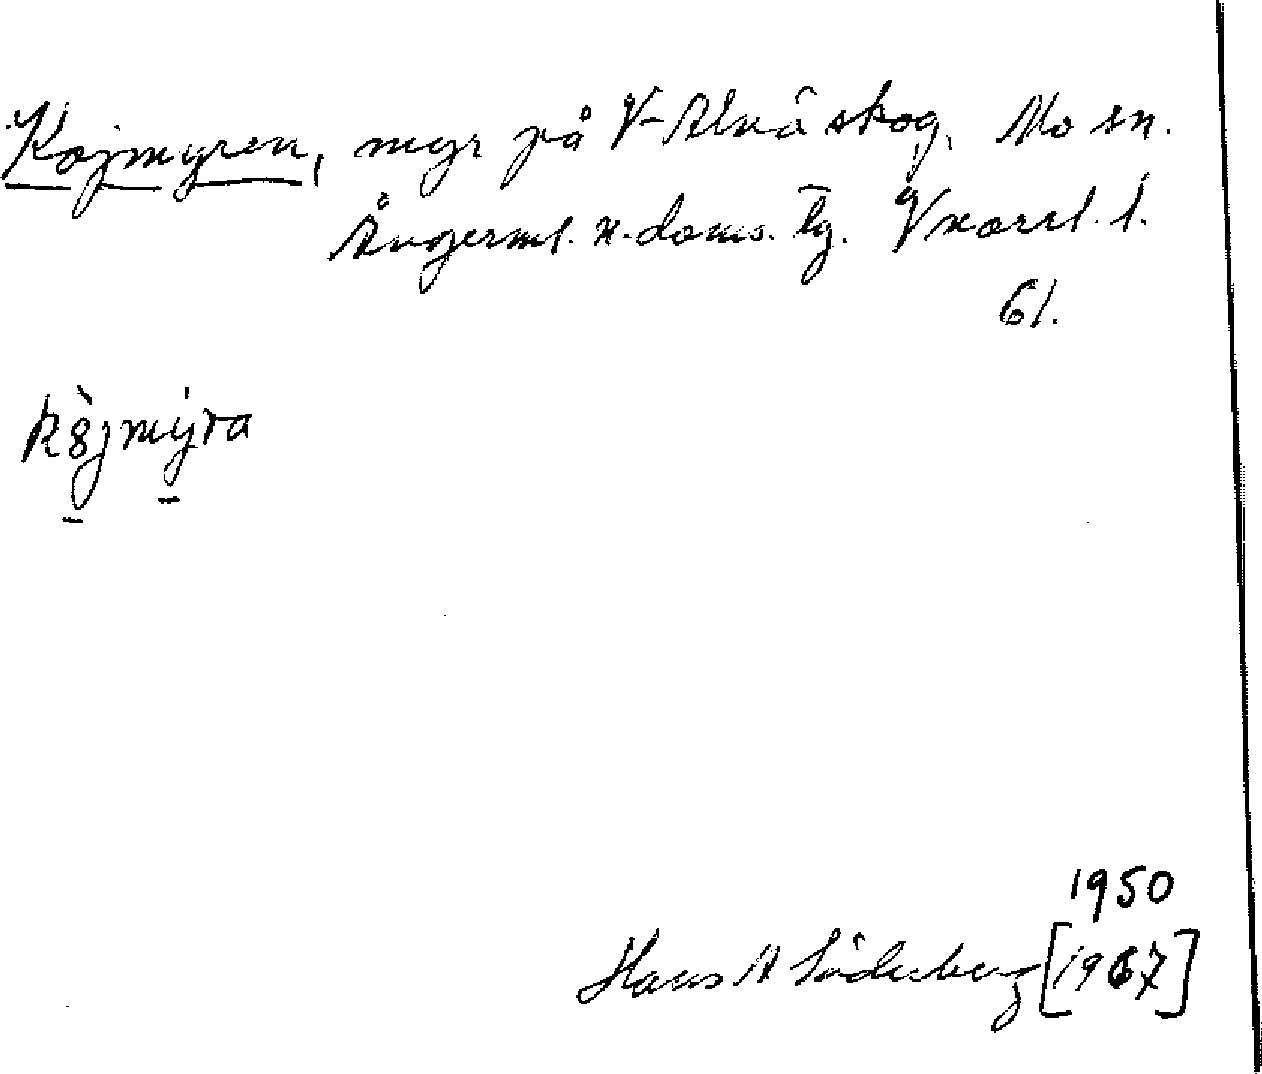 Kojmyren, myr på V-Alnä skog, Mo sn.
Ångerml. n. doms. tg.
61.
Kojmyra
1950
Hans A Söderberg [1967]